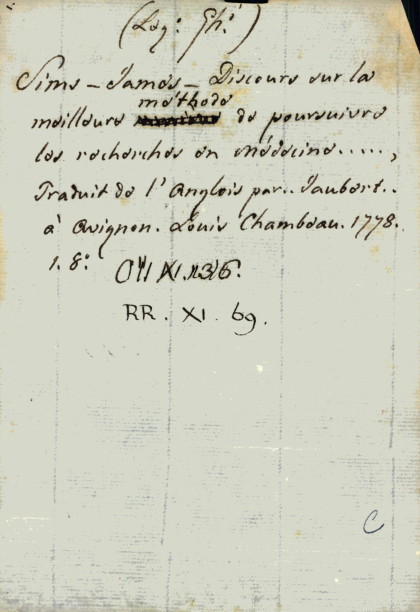 (Leg: Ph:)
Sims - James - Discours sur la
méthode
meilleure de poursuivre
les recherches en Médécine.....,
Traduit de l'Anglois par.. Jaubert..
à Avignon. Louis Chambeau. 1778.
1. 8°.
RR. XI. 69.
C